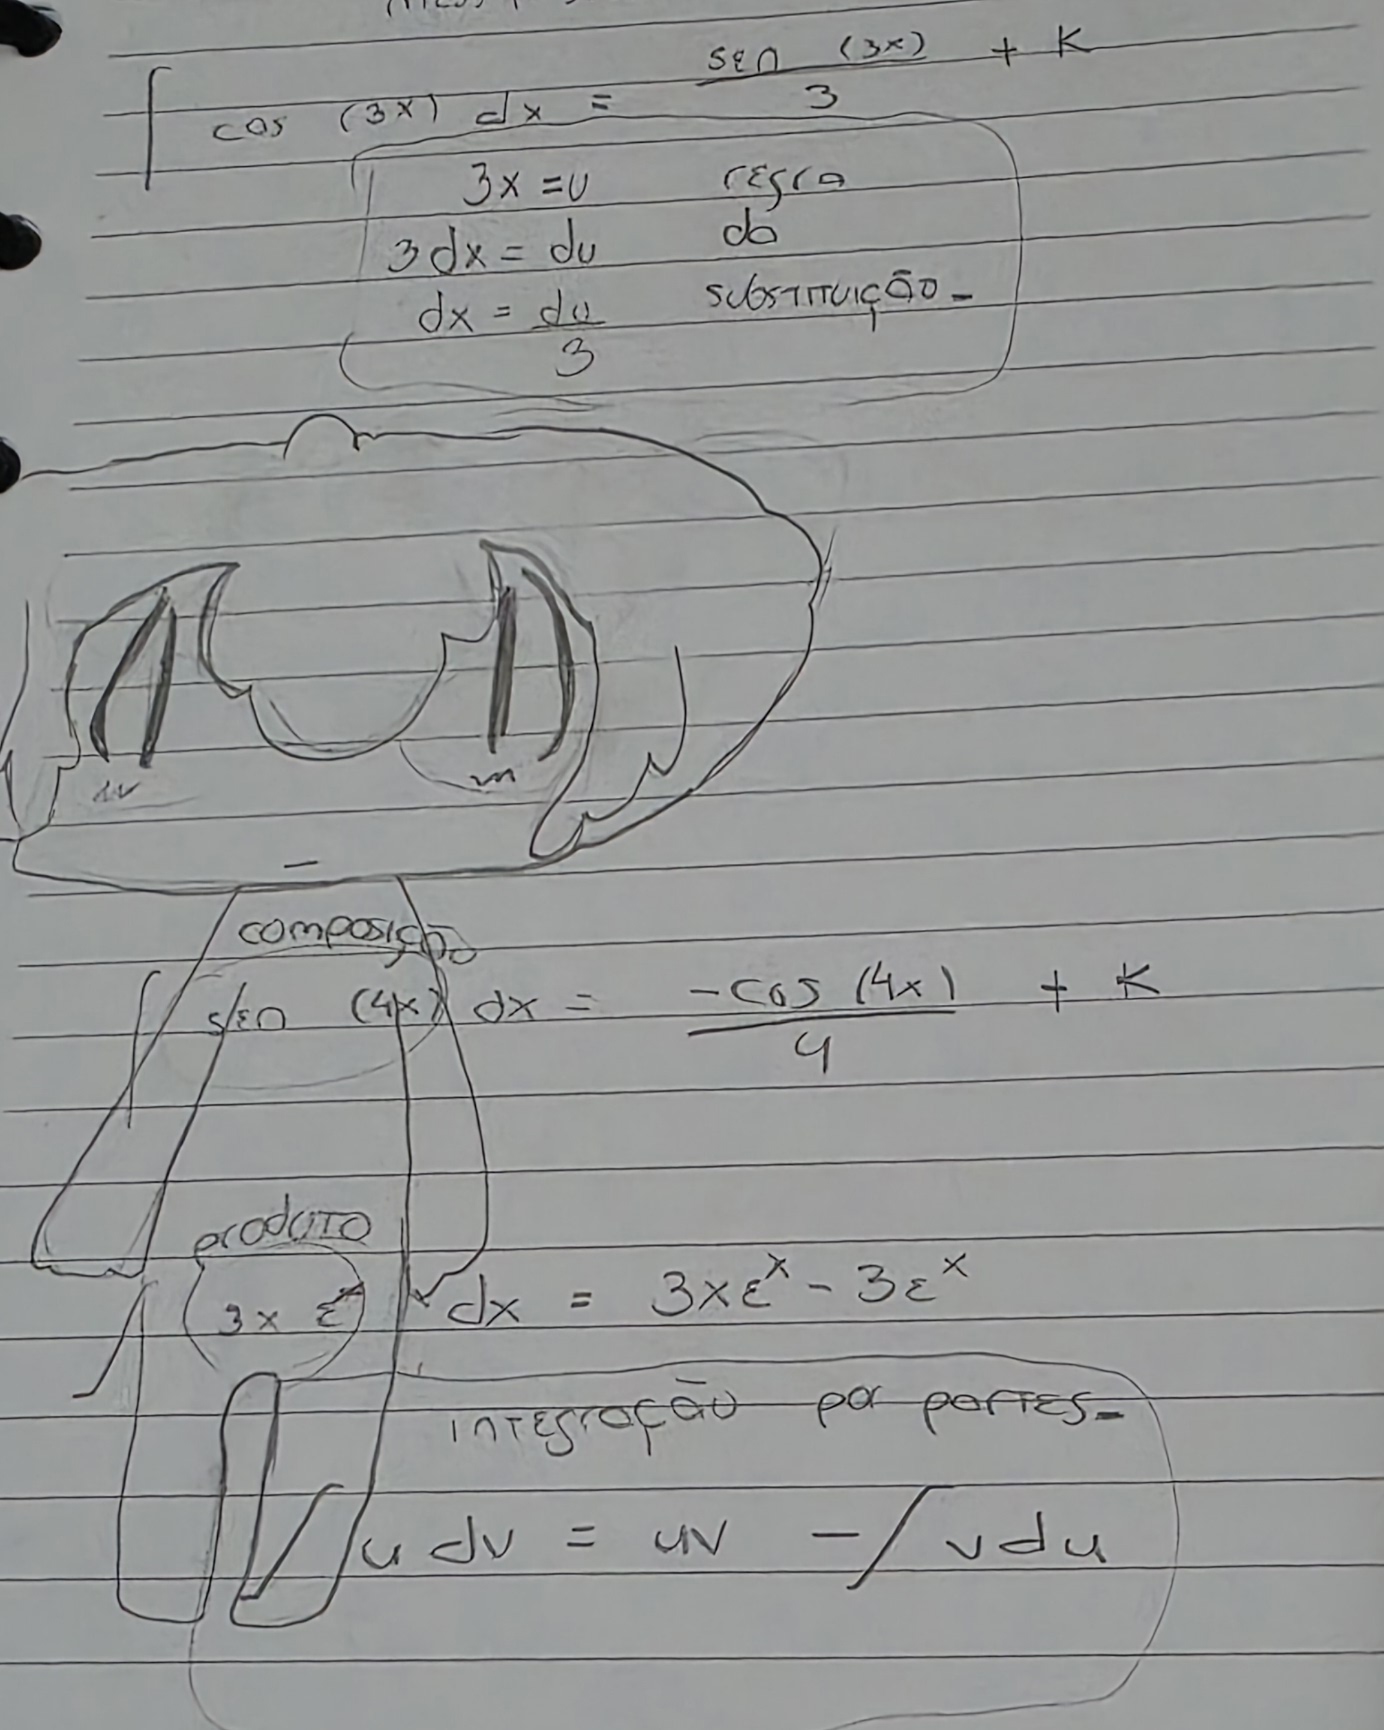 ∫ cos (3x) dx = sen (3x)/3 + K
3x = u regra
3dx = du da
dx = du/3 substituição-
composição
∫ sen (4x) dx = -cos (4x)/4 + K
produto
∫ 3x e^x dx = 3xe^x - 3e^x
integração por partes-
∫ u dv = uv - ∫ v du